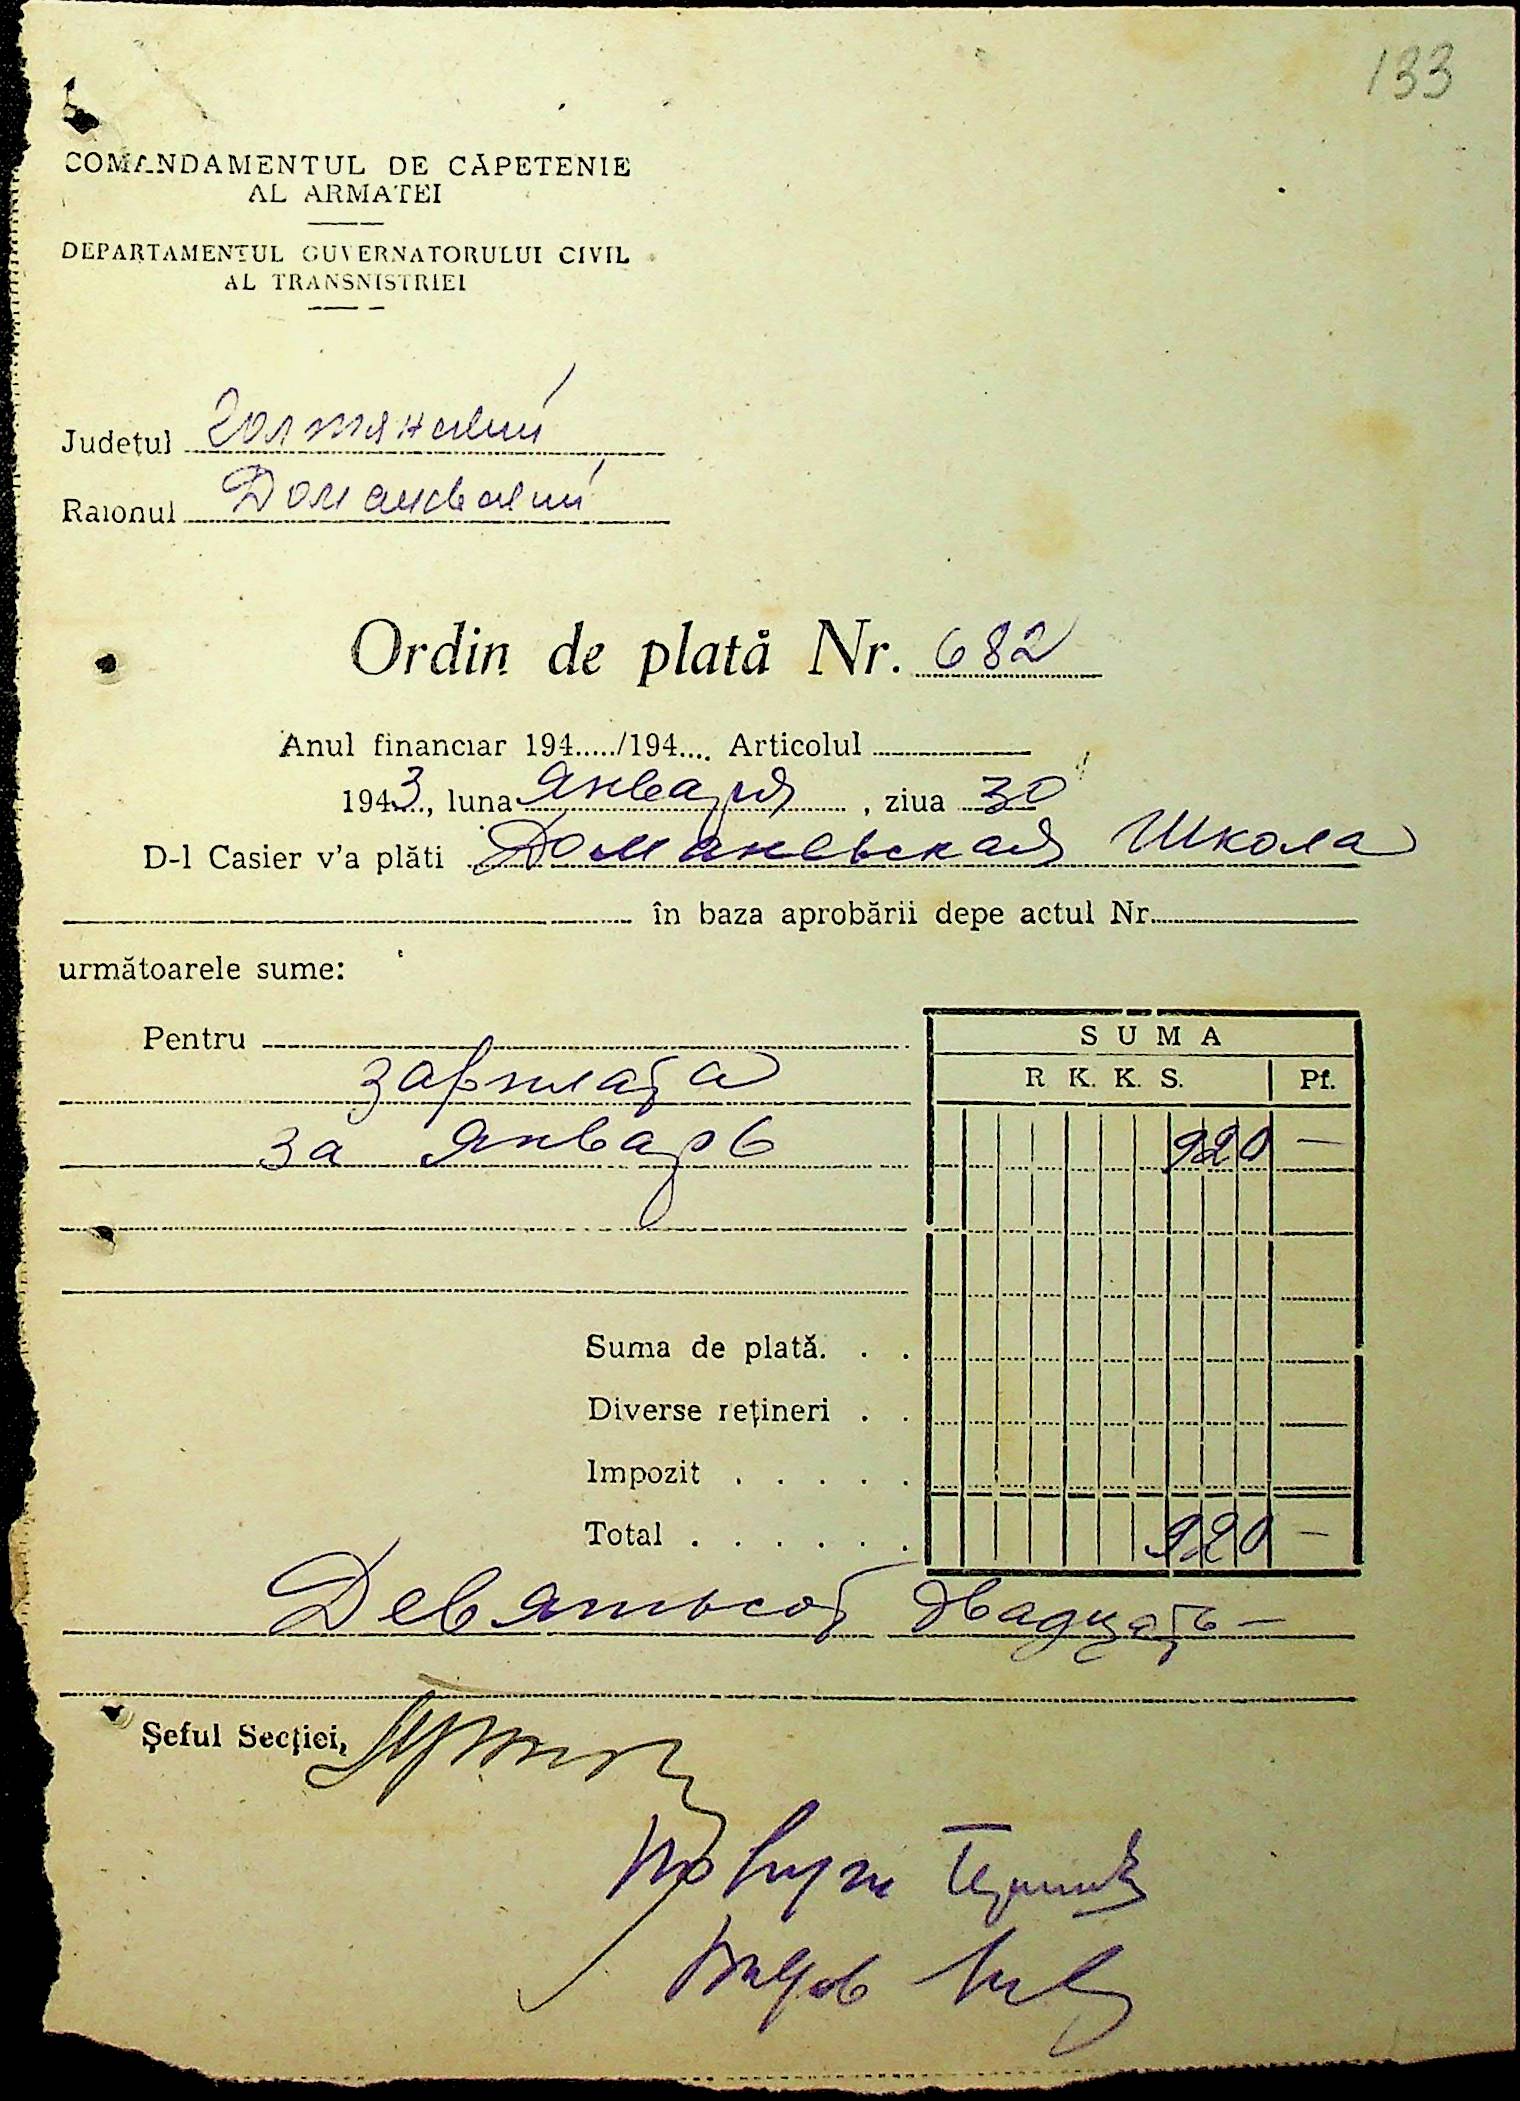 133
COMANDAMENTUL DE CĂPETENIE
AL ARMATEI
DEPARTAMENTUL GUVERNATORULUI CIVIL
AL TRANSNISTRIEI
Județul Голтянский
Raionul Доманевский
Ordin de plată Nr. 682
Anul financiar 194...../194.... Articolul
1943, luna Января, ziua 30
D-l Casier v'a plăti Доманевская Школа
în baza aprobării depe actul Nr.
următoarele sume:
Pentru
SUMA
R K. K. S. Pf.
зарплата
за Январь 920 —
Suma de plată. . .
Diverse rețineri . .
Impozit . . . . .
Total . . . . . . 920 —
Девятьсот двадцать —
Șeful Secției,